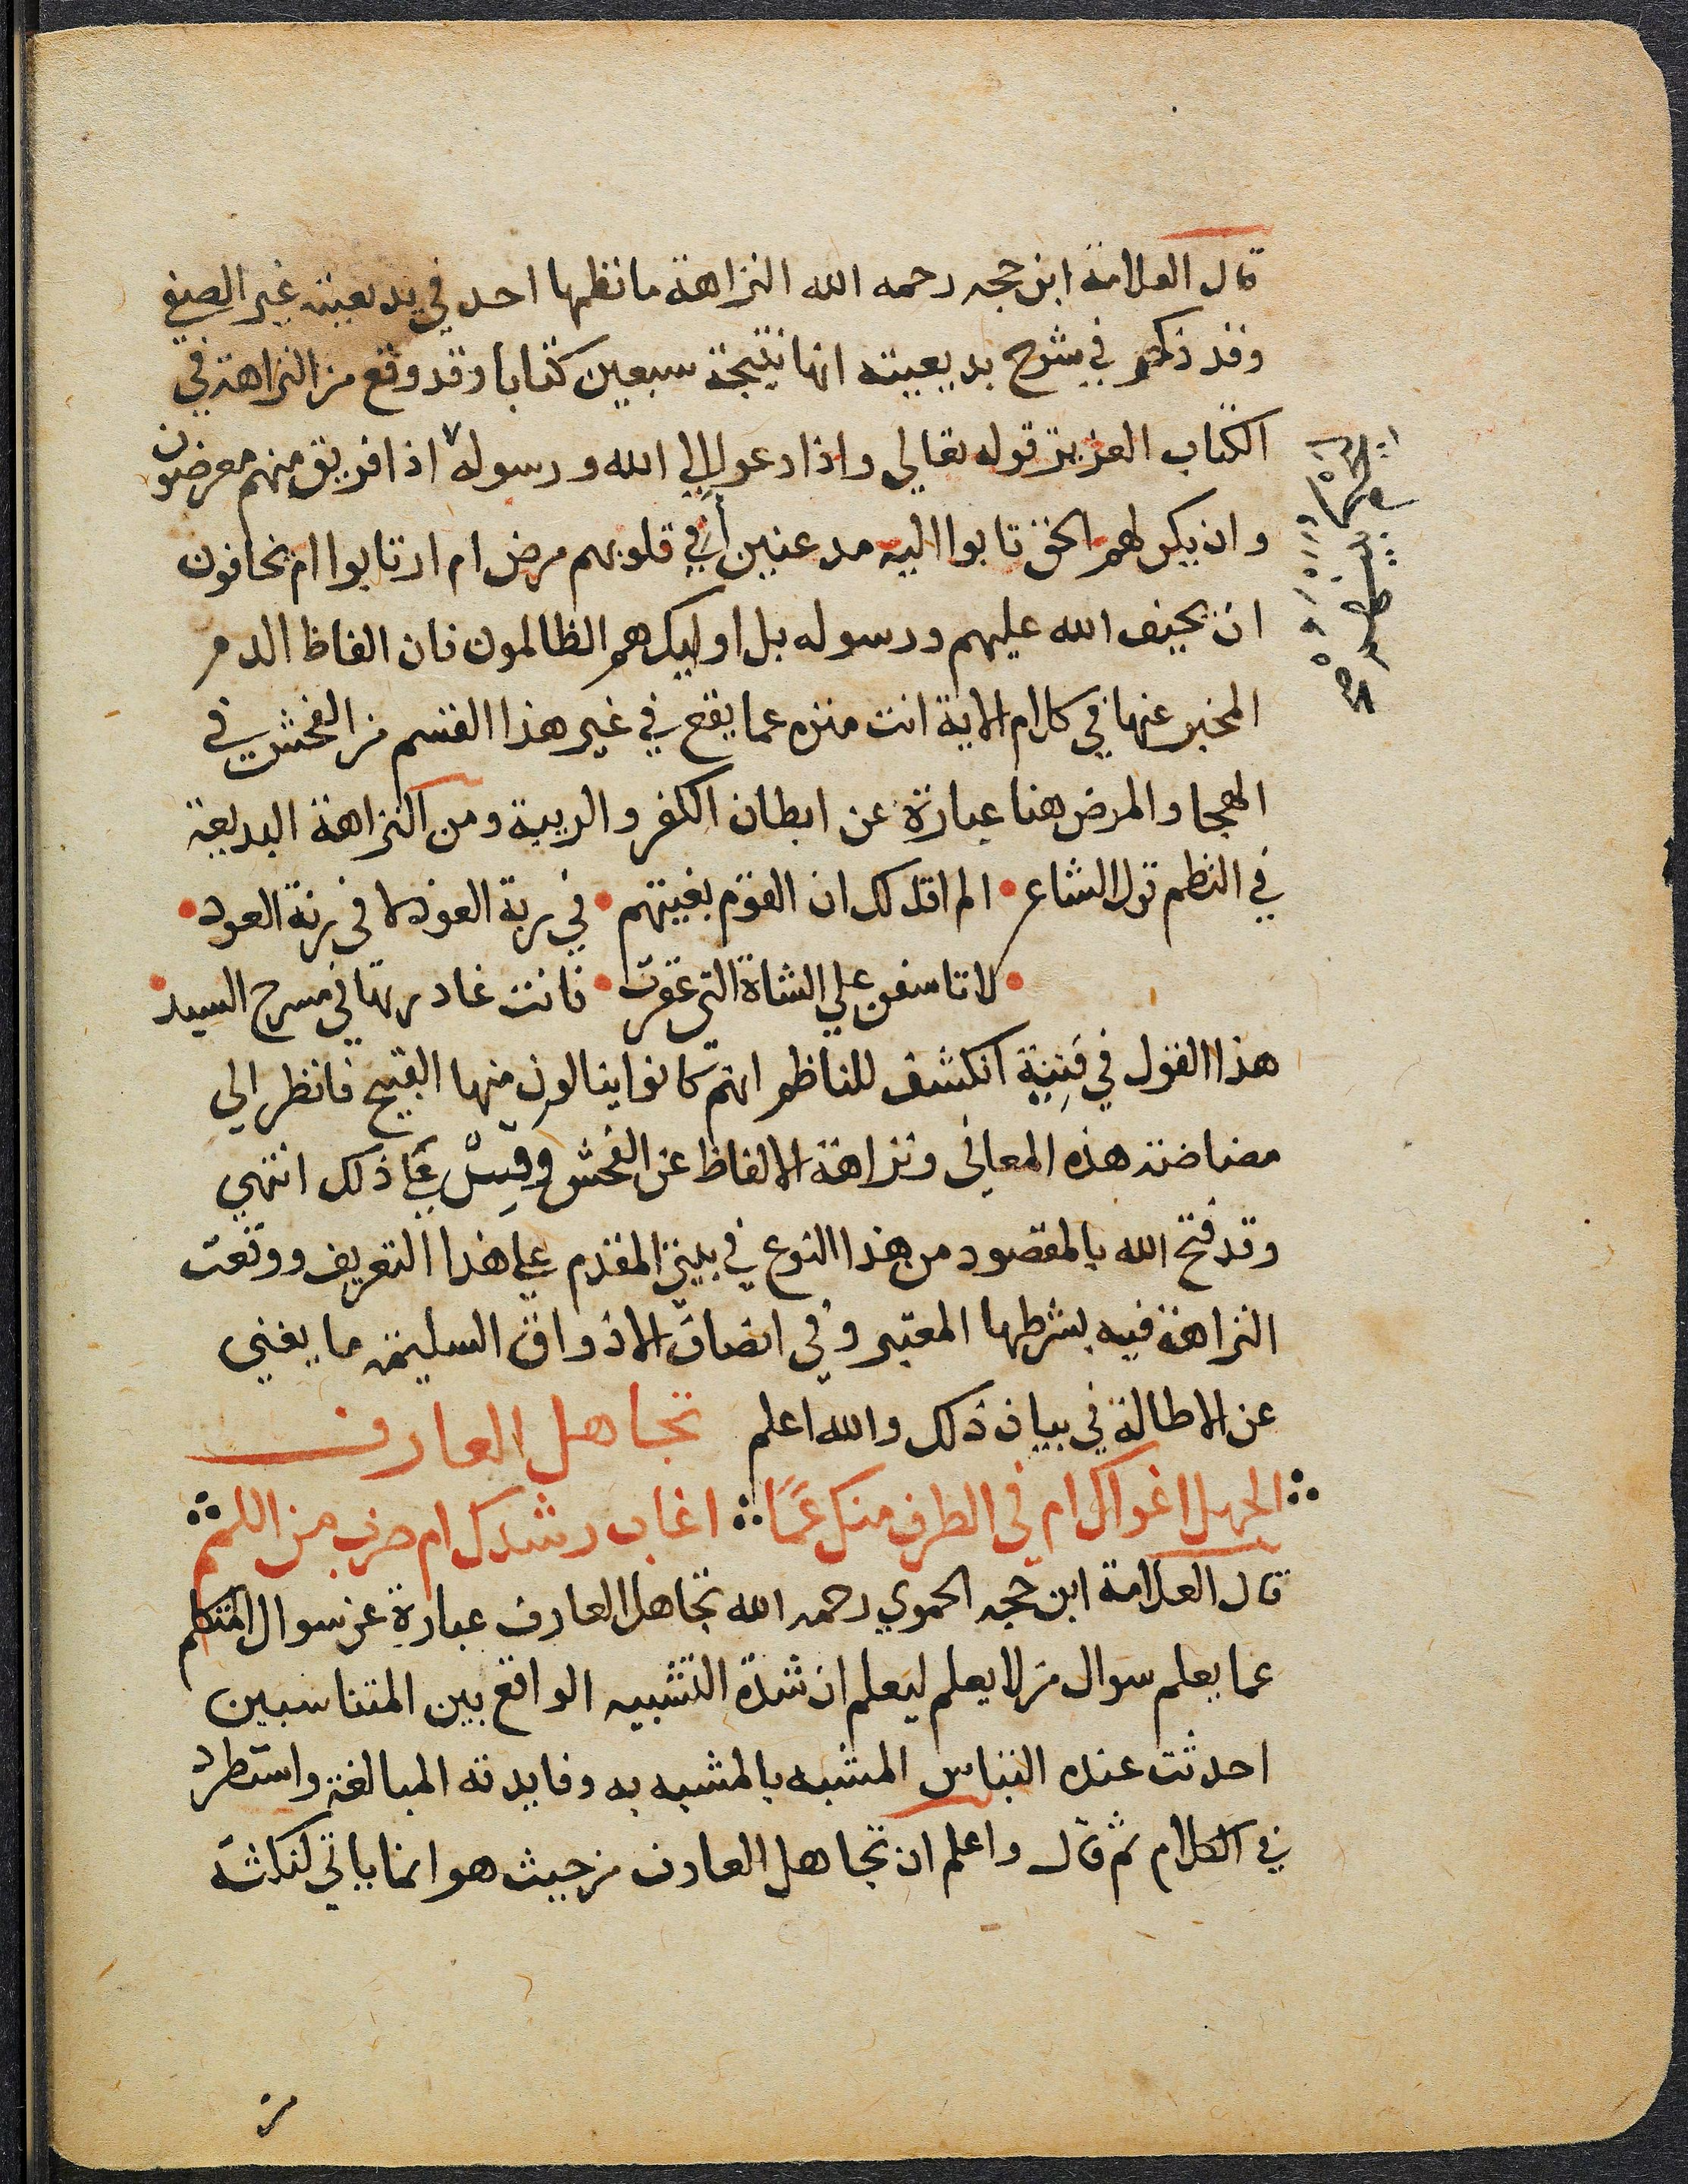 قال العلامة ابن حجه رحمه الله النزاهة ما نظمها احد في بديعيته غير الصفي
وقد ذكر في شرح بديعيته انها نتيجة سبعين كتابا وقد وقع من النزاهة في
الكتاب العزيز قوله تعالي واذا دعوا الي الله ورسوله اذا فريق منهم معرضون
وان يكن لهم الحق تابوا اليه مدعنين أفي قلوبهم مرض ام ارتابوا ام يخافون
ان يحيف الله عليهم ورسوله بل اوليك هم الظالمون فان الفاظ الدم
المخبر عنها في كلام الاية اتت منزه عما يقع في غير هذا القسم من الفحش في
الهجا والمرض هنا عبارة عن ابطان الكفر والريبة ومن النزاهة البديعة
في النظم قول الشاعر • الم اقل لك ان القوم بغيتهم • في ربة العود لا في رنة العود •
• لا تاسفن علي الشاة التي عقرت • فانت غادرتها في مسرح السيد •
هذا القول في قينية انكشف للناظم انهم كانوا ينالون منها القبيح فانظر الي
مضاضة هذه المعاني ونزاهة الالفاظ عن الفحش وقِسْ علي ذلك انتهي
وقد فتح الله بالمقصود من هذا النوع في بيتي المقدم علي هذا التعريف ووقعت
النزاهة فيه بشرطها المعتبر وفي انصاف الاذواق السليمة ما يغني
عن الاطالة في بيان ذلك والله اعلم تجاهل العارف
الجهل اغواك ام في الطرف منك عمًا اغاب رشدك ام ضرب من اللمم
قال العلامة ابن حجه الحموي رحمه الله تجاهل العارف عبارة عن سوال المتكلم
عما يعلم سوال من لا يعلم ليعلم ان شدة التشبيه الواقع بين المتناسبين
احدثت عنده التباس المشبه بالمشبه به وفايدته المبالغة واستطرد
في الكلام ثم قال واعلم ان تجاهل العارف من حيث هو انما ياتي لنكتة
من